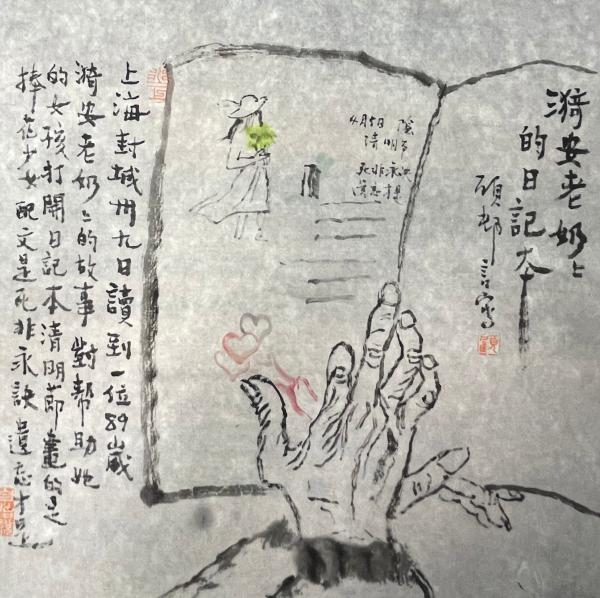 漪安老奶々
的日記本
硕邨
4月5日
清明
死非永
上海封城卅九日讀到一位89歲
漪安老奶々的故事對幫助她
的女孩打開日記本清明節畫的是
捧花少女配文是死非永訣遺忘才是